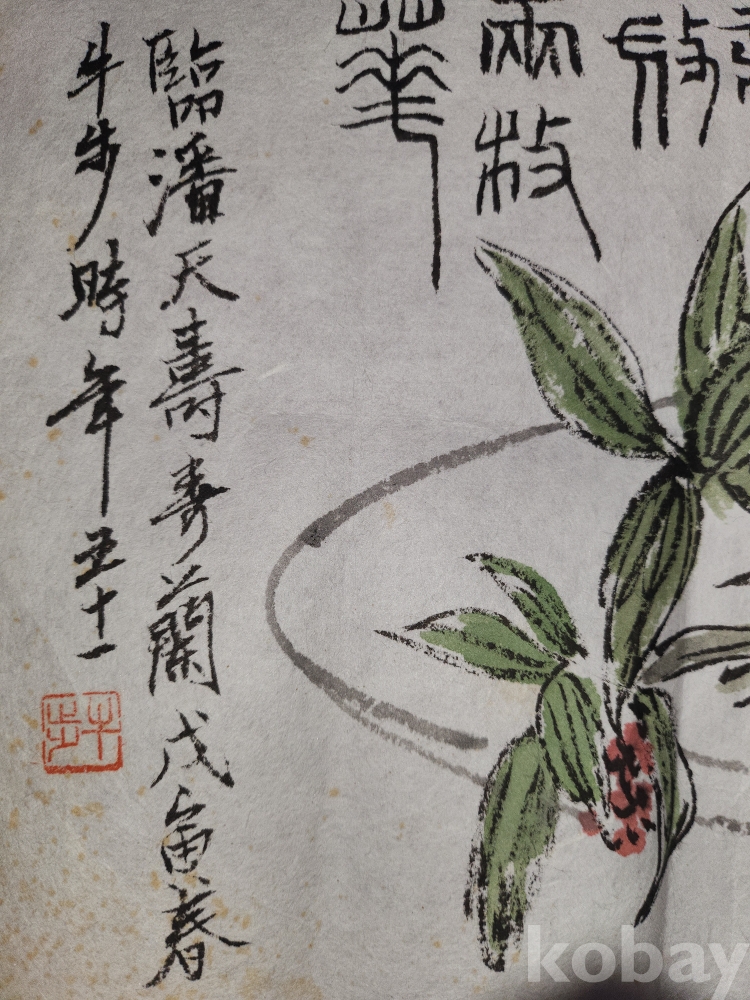 兩
華
臨潘天壽寿蘭戊寅春
牛步時年五十一
牛步
kobay